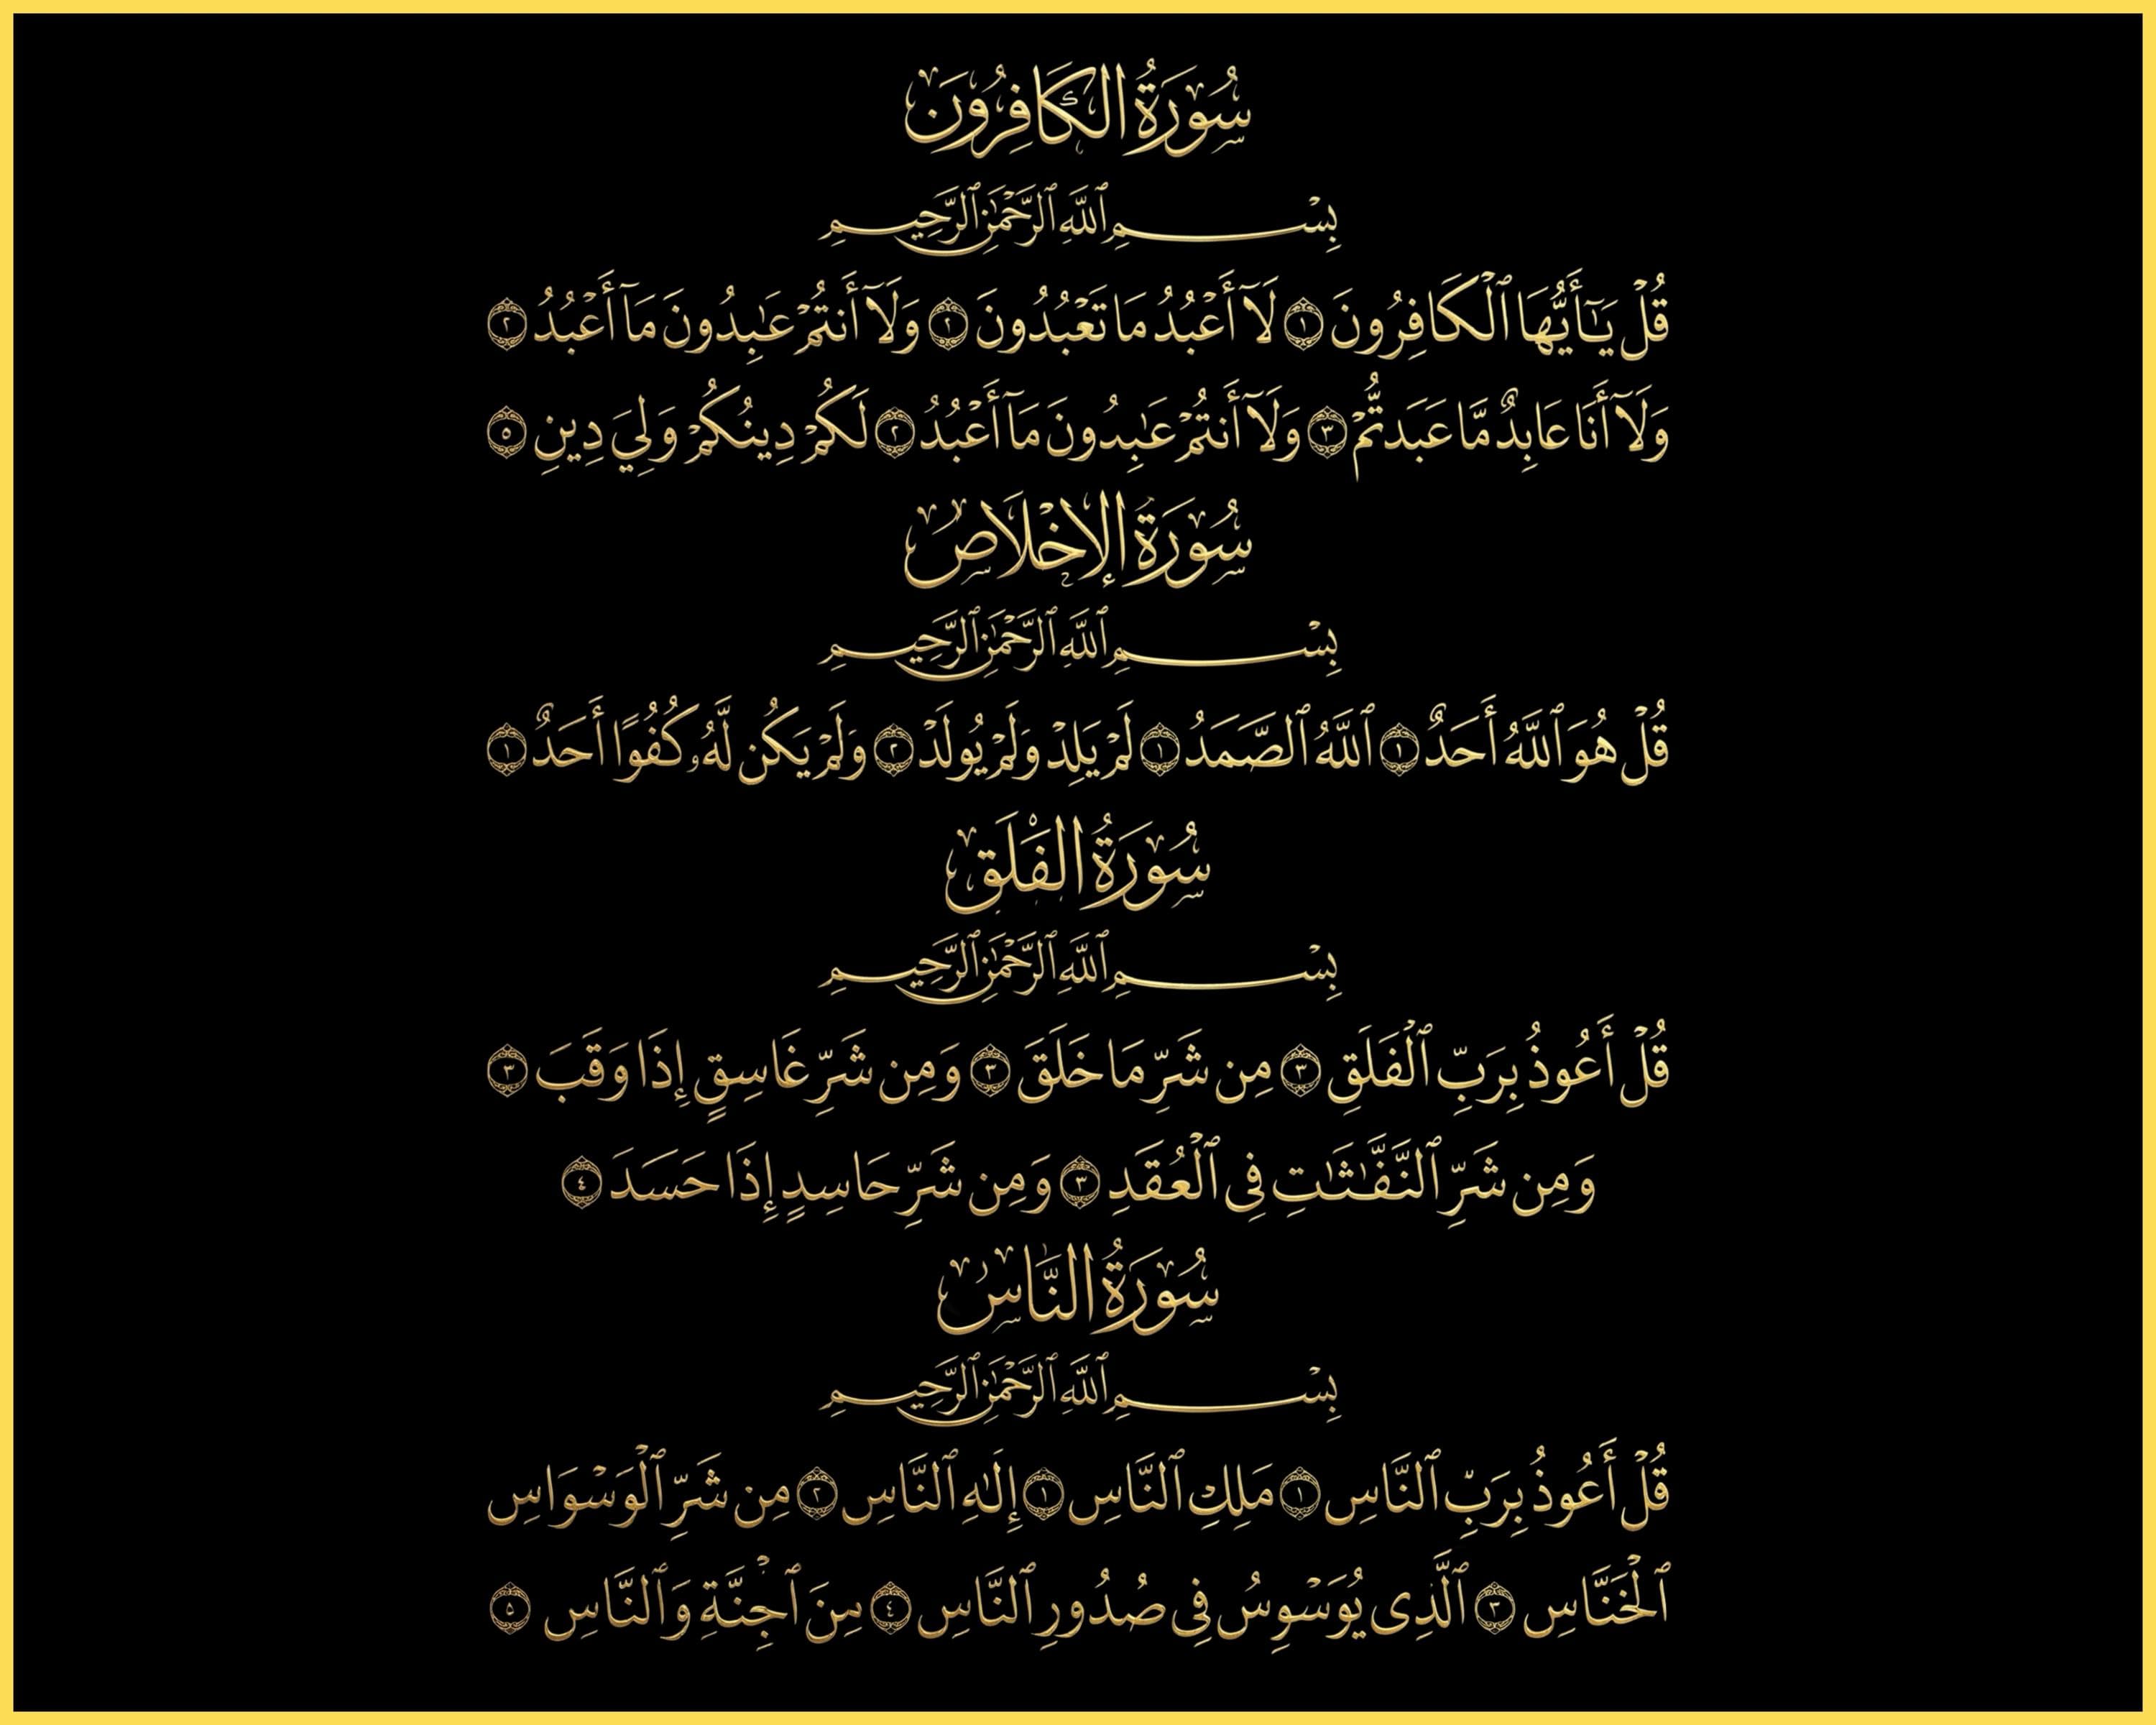 سُورَةُ الكَافِرُونَ
بِسْمِ ٱللَّهِ ٱلرَّحْمَٰنِ ٱلرَّحِيمِ
قُلْ يَـٰٓأَيُّهَا ٱلْكَافِرُونَ ١ لَآ أَعْبُدُ مَا تَعْبُدُونَ ٢ وَلَآ أَنتُمْ عَـٰبِدُونَ مَآ أَعْبُدُ ٢
وَلَآ أَنَا۠ عَابِدٌ مَّا عَبَدتُّمْ ٣ وَلَآ أَنتُمْ عَـٰبِدُونَ مَآ أَعْبُدُ ٢ لَكُمْ دِينُكُمْ وَلِيَ دِينِ ٥
سُورَةُ الإِخْلَاصِ
بِسْمِ ٱللَّهِ ٱلرَّحْمَٰنِ ٱلرَّحِيمِ
قُلْ هُوَ ٱللَّهُ أَحَدٌ ١ ٱللَّهُ ٱلصَّمَدُ ١ لَمْ يَلِدْ وَلَمْ يُولَدْ ٢ وَلَمْ يَكُن لَّهُۥ كُفُوًا أَحَدٌ ١
سُورَةُ الفَلَقِ
بِسْمِ ٱللَّهِ ٱلرَّحْمَٰنِ ٱلرَّحِيمِ
قُلْ أَعُوذُ بِرَبِّ ٱلْفَلَقِ ٣ مِن شَرِّ مَا خَلَقَ ٣ وَمِن شَرِّ غَاسِقٍ إِذَا وَقَبَ ٣
وَمِن شَرِّ ٱلنَّفَّـٰثَـٰتِ فِى ٱلْعُقَدِ ٣ وَمِن شَرِّ حَاسِدٍ إِذَا حَسَدَ ٤
سُورَةُ النَّاسِ
بِسْمِ ٱللَّهِ ٱلرَّحْمَٰنِ ٱلرَّحِيمِ
قُلْ أَعُوذُ بِرَبِّ ٱلنَّاسِ ١ مَلِكِ ٱلنَّاسِ ١ إِلَـٰهِ ٱلنَّاسِ ٢ مِن شَرِّ ٱلْوَسْوَاسِ
ٱلْخَنَّاسِ ٣ ٱلَّذِى يُوَسْوِسُ فِى صُدُورِ ٱلنَّاسِ ٤ مِنَ ٱجِنَّةِ وَٱلنَّاسِ ٥